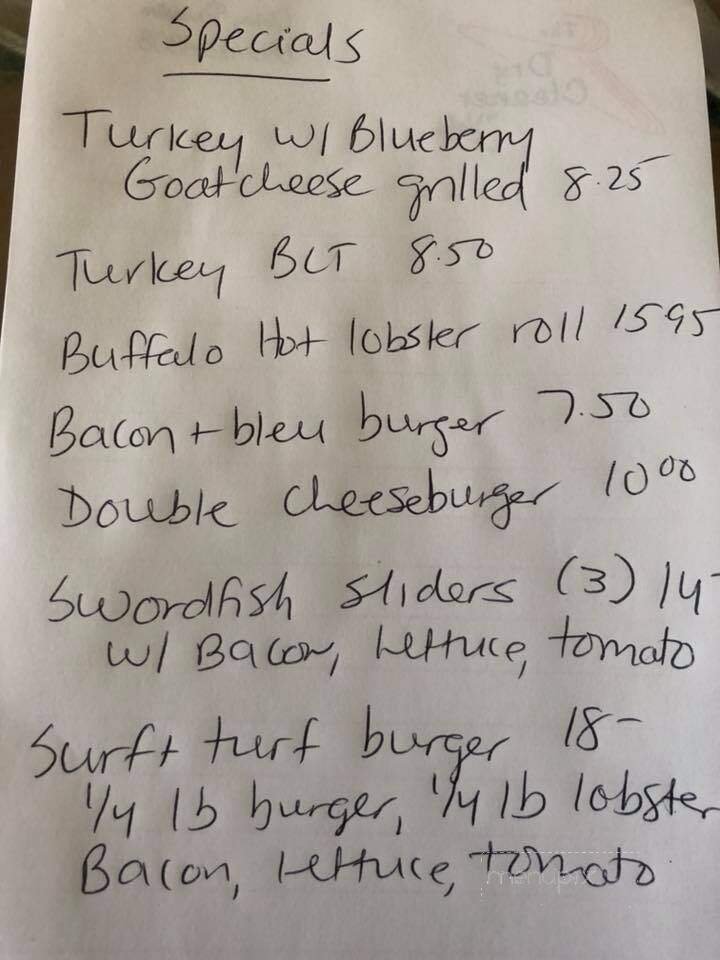 Specials
Turkey w/ Blueberry
Goatcheese grilled 8.25
Turkey BLT 8.50
Buffalo Hot lobster roll 1595
Bacon + bleu burger 7.50
Double cheeseburger 10 00
Swordfish sliders (3) 14-
w/ Bacon, lettuce, tomato
Surf + turf burger 18-
1/4 lb burger, 1/4 lb lobster
Bacon, lettuce, tomato
menupix
Dry
Cleaner